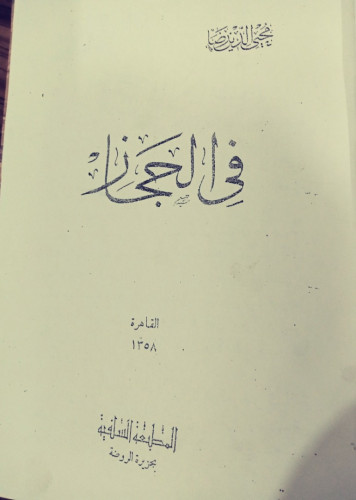 محيي الدين رضا
في الحجاز
القاهرة
١٣٥٨
المطبعة السلفية
بجزيرة الروضة